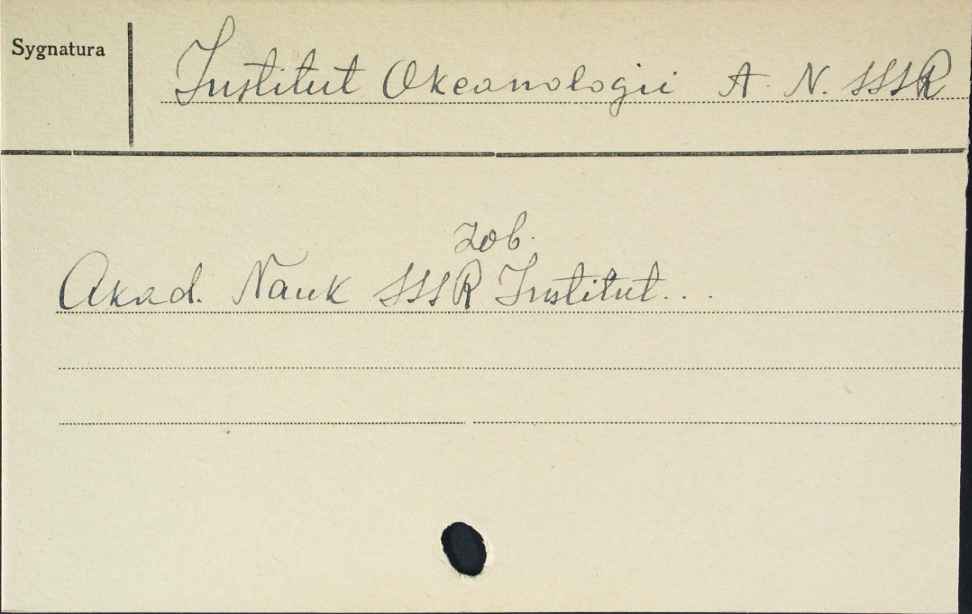 Sygnatura
Institut Okeanologii A. N. SSSR
zob.
Akad. Nauk SSSR Institut...